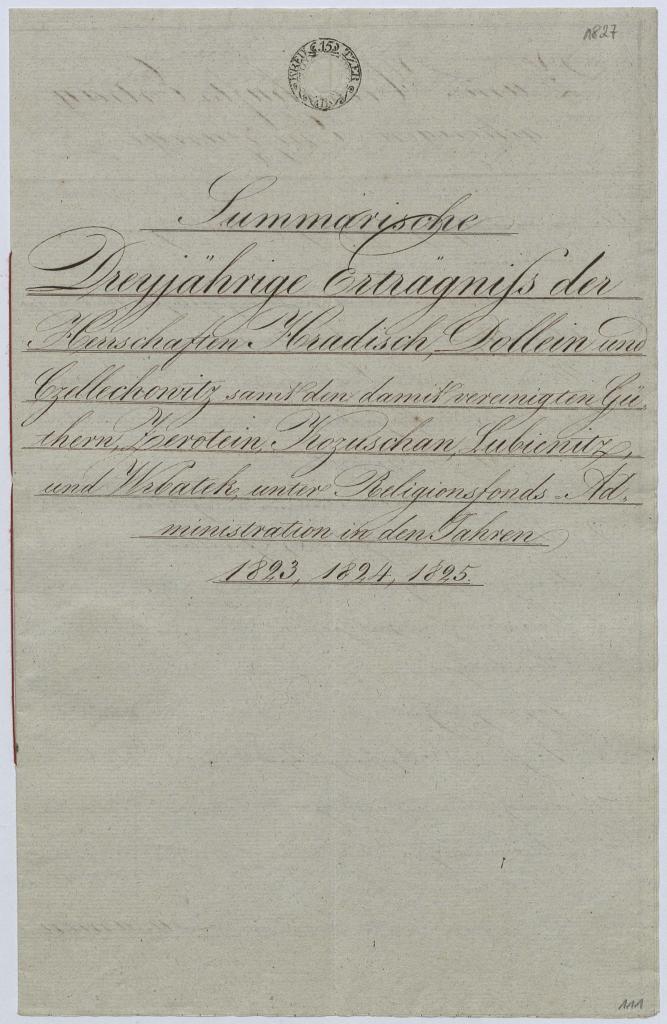 1827
15
KREU TZER
Summarische
Dreyjährige Erträgniſs der
Herrschaften Hradisch, Dollein und
Czellechowitz samt den damit vereinigten Gü-
thern, Zerotein, Kozuschan, Lubienitz,
und Wrbatek, unter Religionsfonds-Ad-
ministration in den Jahren
1823, 1824, 1825.
111